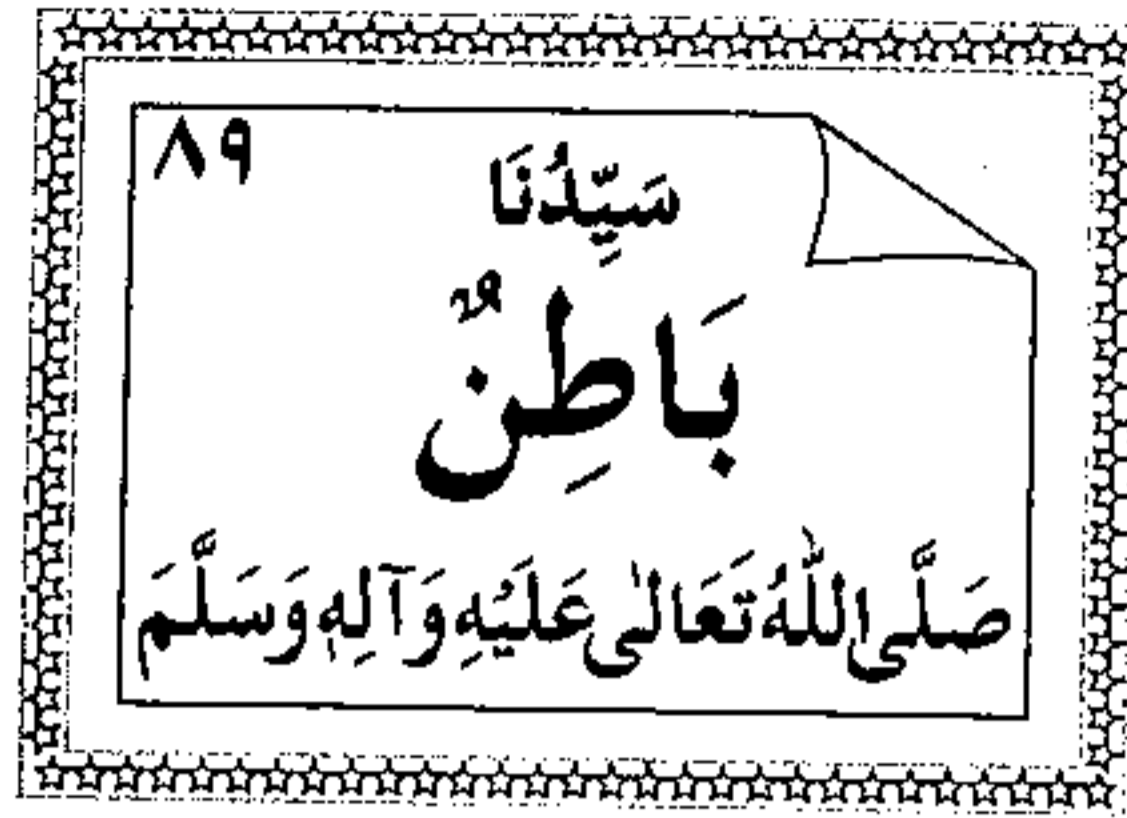 ٨٩
سَيِّدُنَا
بَاطِنٌ
صَلَّى اللّٰهُ تَعَالٰى عَلَيْهِ وَآلِهٖ وَسَلَّمَ